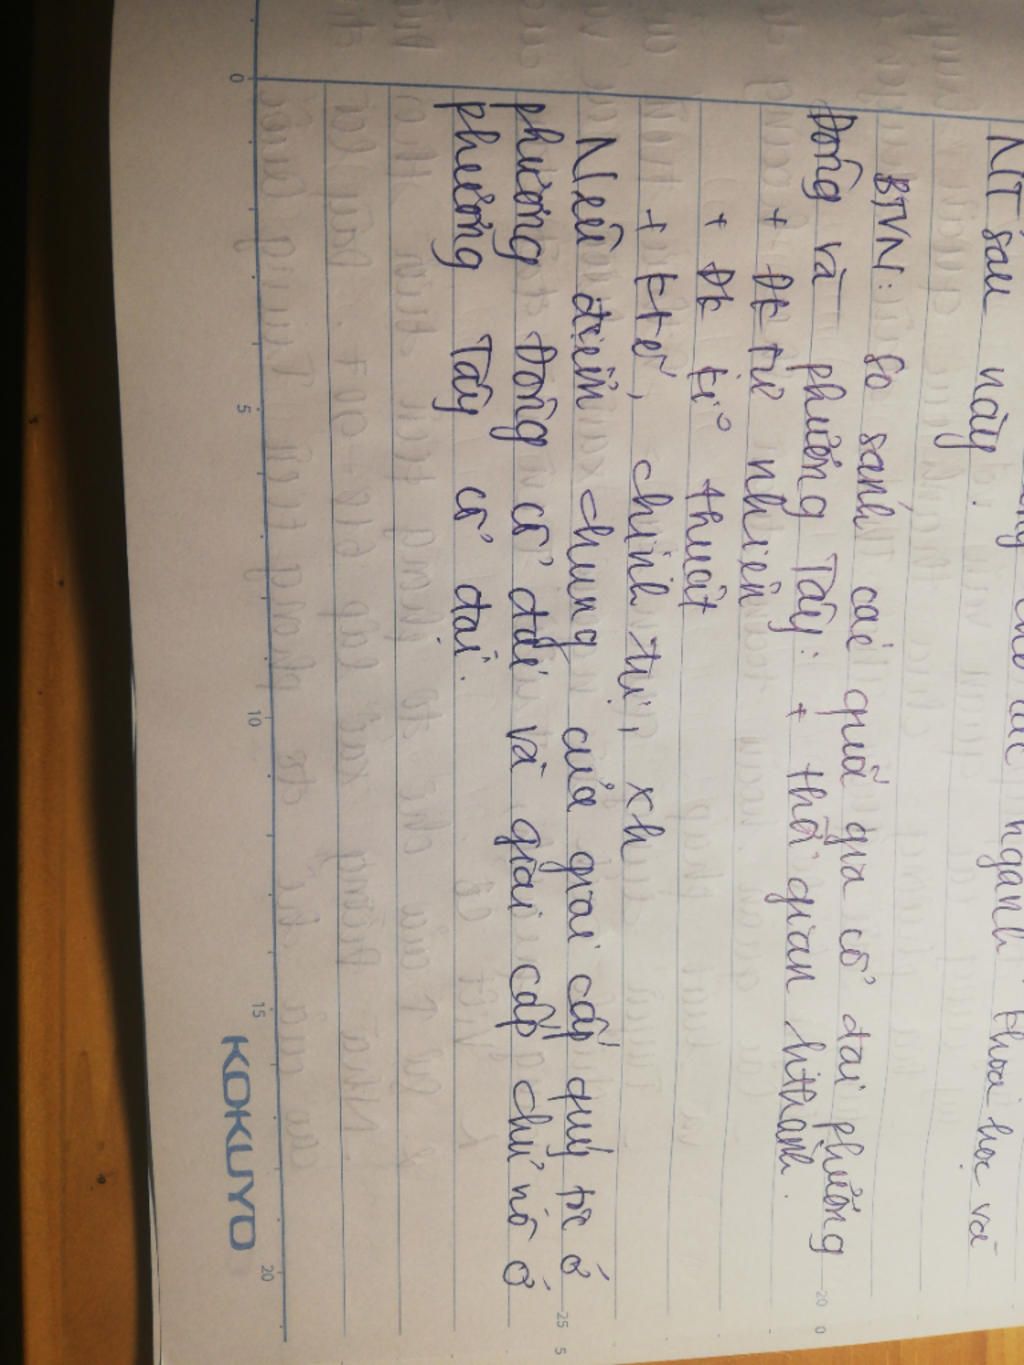 cho các ngành khoa học và
NT sau này.
BTVN: So sánh các quốc gia cổ đại phương
Đông và phương Tây: + thời gian hthành.
+ Đk tự nhiên
+ Đk kĩ thuật
+ ktế, chính trị, xh
Nêu điểm chung của giai cấp quý tộc ở
phương Đông cổ đại và giai cấp chủ nô ở
phương Tây cổ đại.
KOKUYO
0 5 10 15 20
20 0
25 5